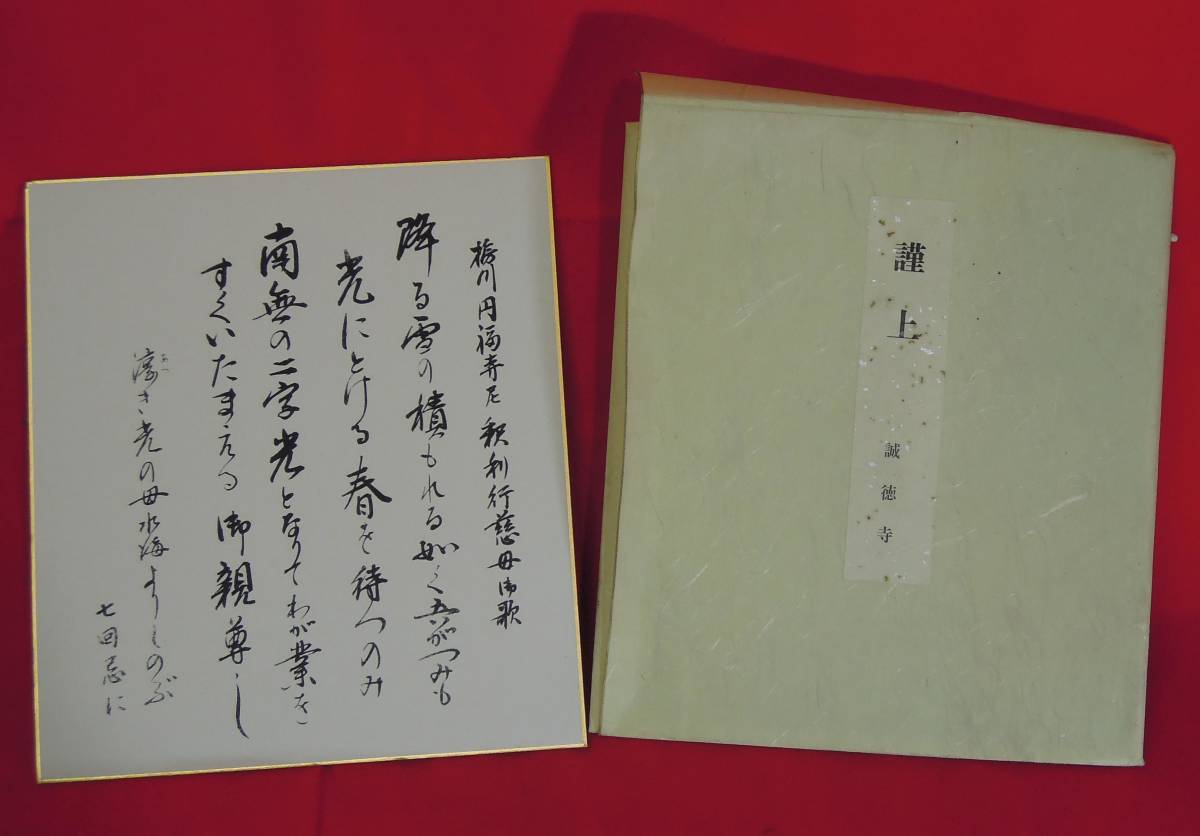 川円福寺尼 釈利行慈母御歌
降る雪の積もれる如く吾がつみも
光にとける春を待つのみ
南無の二字光となりてわが業を
すくいたまえる御親尊し
淳き光の母 海よりしのぶ
七回忌に
謹上
誠徳寺